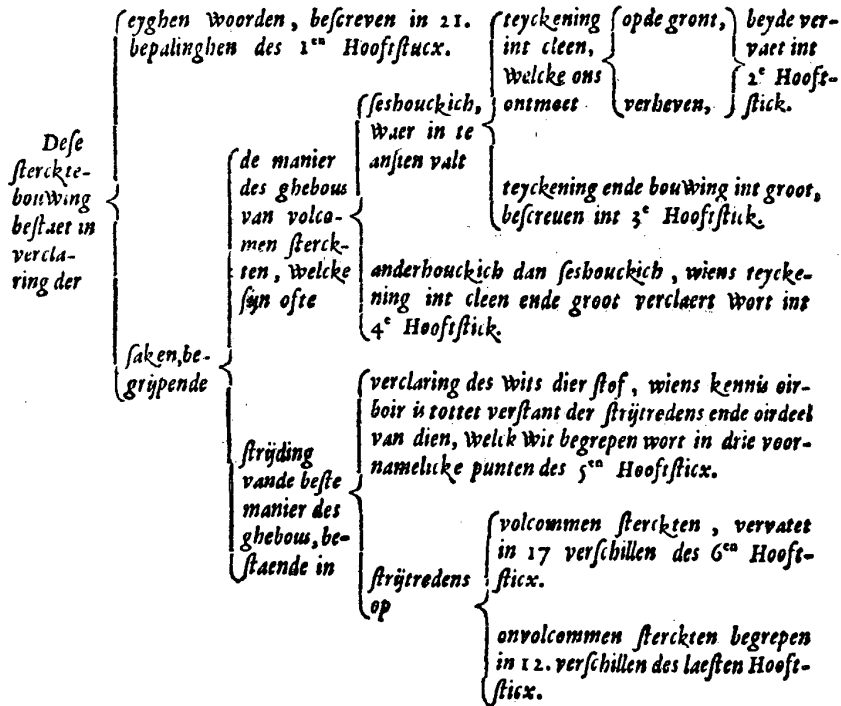 Dese
sterckte-
bouwing
bestaet in
vercla-
ring der
eyghen woorden, bescreven in 21.
bepalinghen des 1en Hooftstucx.
saken, be-
grijpende
de manier
des ghebous
van volco-
men sterck-
ten, welcke
sijn ofte
seshouckich,
waer in te
ansien valt
teyckening
int cleen,
welcke ons
ontmoet
opde gront,
verheven,
beyde ver-
vaet int
2e Hooft-
stick.
teyckening ende bouwing int groot,
bescreuen int 3e Hooftstick.
anderhouckich dan seshouckich, wiens teycke-
ning int cleen ende groot verclaert wort int
4e Hooftstick.
strijding
vande beste
manier des
ghebous, be-
staende in
verclaring des wits dier stof, wiens kennis oir-
boir is tottet verstant der strijtredens ende oirdeel
van dien, welck wit begrepen wort in drie voor-
namelicke punten des 5en Hooftsticx.
strijtredens
op
volcommen sterckten, vervatet
in 17 verschillen des 6en Hooft-
sticx.
onvolcommen sterckten begrepen
in 12. verschillen des laesten Hooft-
sticx.